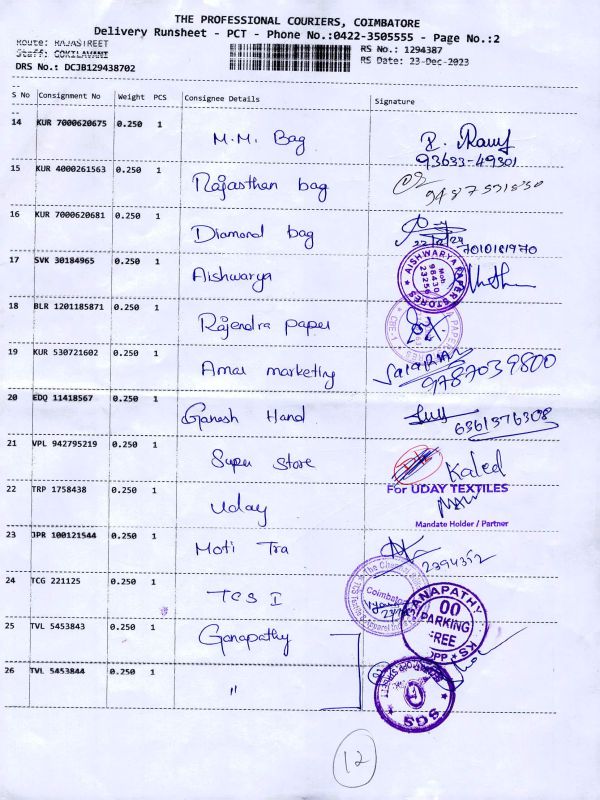 THE PROFESSIONAL COURIERS, COIMBATORE
Delivery Runsheet - PCT - Phone No.:0422-3505555 - Page No.:2
Route: RAJASTREET
RS No.: 1294387
Staff: GOKILAVANI
RS Date: 23-Dec-2023
DRS No.: DCJB129438702
S No Consignment No Weight PCS Consignee Details Signature
14 KUR 7000620675 0.250 1 M.M. Bag
93633-49301
15 KUR 4000261563 0.250 1 Rajasthan bag
16 KUR 7000620681 0.250 1 Diamond bag
7010181970
17 SVK 30184965 0.250 1 Aishwarya
AISHWARYA PAPER STORES
Mob
98430
23256
18 BLR 1201185871 0.250 1 Rajendra paper
19 KUR 530721602 0.250 1 Amar marketing
9787039800
20 EDQ 11418567 0.250 1 Ganesh Hand
6361376308
21 VPL 942795219 0.250 1 Super Store
Kaled
For UDAY TEXTILES
22 TRP 1758438 0.250 1 Uday
Mandate Holder / Partner
23 JPR 100121544 0.250 1 Moti Tra
2394352
24 TCG 221125 0.250 1 TCS I
Coimbatore
25 TVL 5453843 0.250 1 Ganapathy
GANAPATHY
00
PARKING
FREE
26 TVL 5453844 0.250 1 "
SDS
12